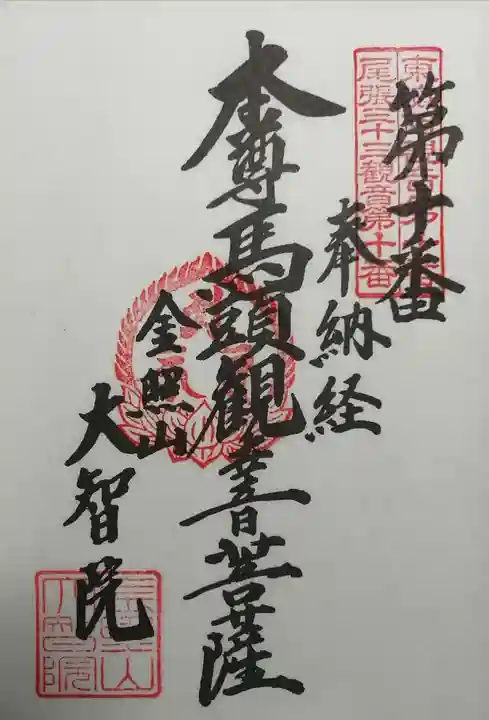 第十番
尾張三十三観音第十番
奉納経
本尊馬頭観音菩薩
金照山
大智院
金照山
大智院